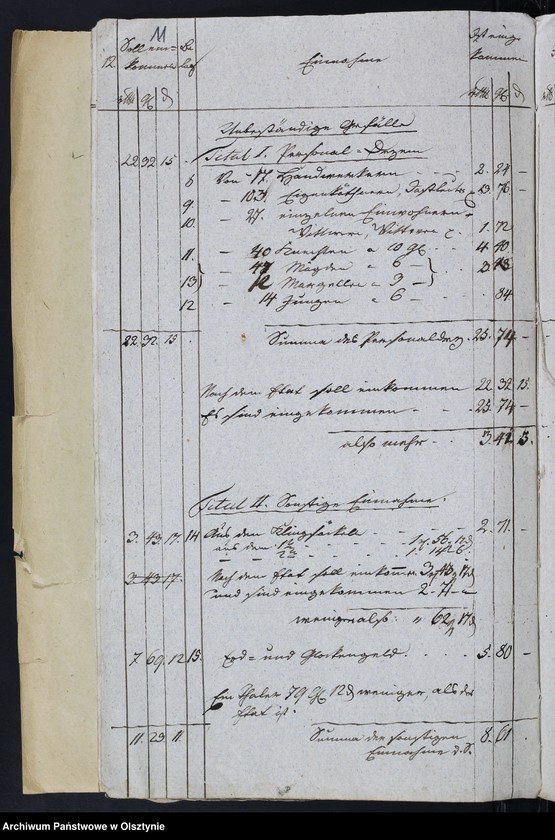 11
12
Soll ein= Be
kommen lag
Einnahme
Ist einge
kommen
rthl gl d
rthl gl d
Unbeständige Gefälle
Titul I. Personal=Dezem
22 32 15.
8 Von 17 Handwerkern 2. 24 —
9. — 103 Eigenkäthnern, Instleute 13. 76 —
10. — 27. einzelnen Einwohnern
Wittwern, Wittwen 1. 72
11. — 40 Knechten a 10 gl 4. 40
— 47 Mägden a 6 —
13 — 12 Margellen a 3 —
12 — 14 Jungen a 6 — . 84
22. 32. 15. Summa des Personaldez. 25. 74 —
Nach dem Etat soll einkommen 22. 32 15.
Es sind eingekommen 25. 74 —
also mehr 3. 41 3.
Titul II. Sonstige Einnahme.
3. 43. 17. 14 Aus dem Klingsäckeln 2. 71. —
aus dem
3. 43. 17. Nach dem Etat soll einkommen 3 43 17
und sind eingekommen 2 — 71 —
weniger also: " 62 17
7. 69. 12 15. Erd= und Glockengeld 5. 80 —
Ein Thaler 79 gl 12 d weniger als der
Etat ist.
11. 23 11 Summa der sonstigen 8. 61
Einnahme d. S.
Archiwum Państwowe w Olsztynie